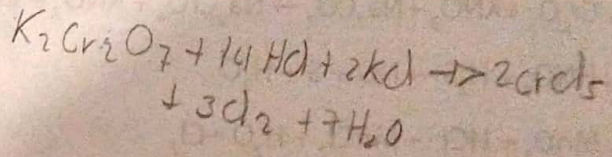 K₂Cr₂O₇ + 14 HCl + 2KCl → 2CrCl₅
+ 3Cl₂ + 7H₂O